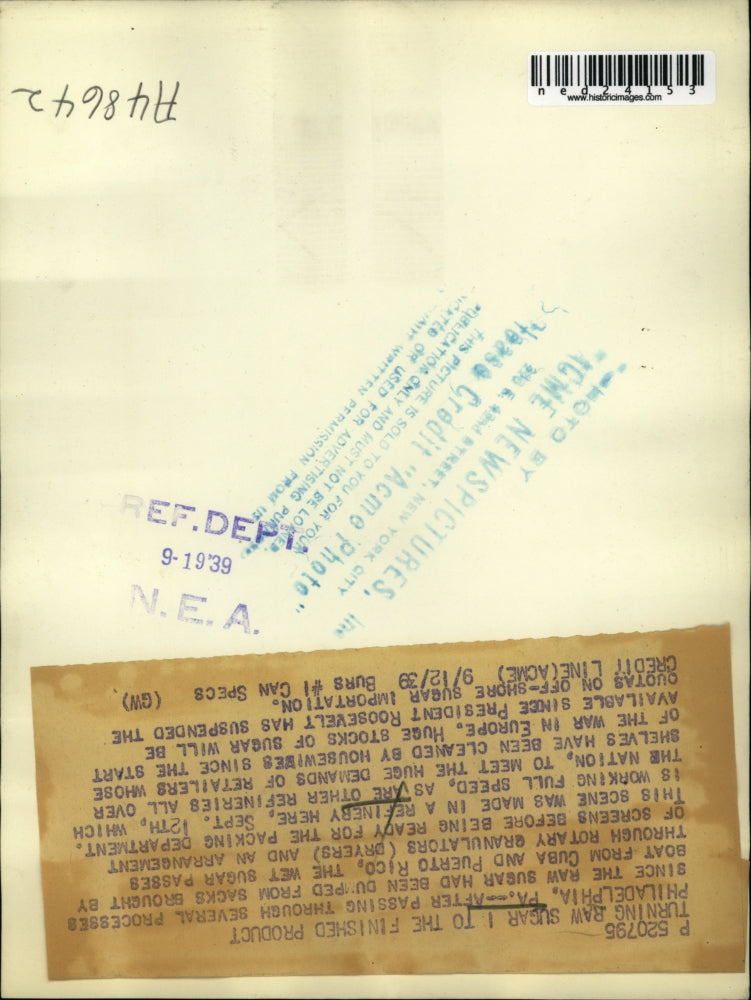 A48642
ned24153
www.historicimages.com
"PHOTO BY
ACME NEWSPICTURES, Inc
220 E. 42nd STREET, NEW YORK CITY
Please Credit "Acme Photo"
THIS PICTURE IS SOLD TO YOU FOR YOUR
PUBLICATION ONLY AND MUST NOT BE
OR USED FOR ADVERTISING
WRITTEN PERMISSION FROM US.
REF. DEPT.
9-19'39
N. E. A.
P 520795
TURNING RAW SUGAR I TO THE FINISHED PRODUCT
PHILADELPHIA, PA.--AFTER PASSING THROUGH SEVERAL PROCESSES
SINCE THE RAW SUGAR HAD BEEN DUMPED FROM SACKS BROUGHT BY
BOAT FROM CUBA AND PUERTO RICO, THE WET SUGAR PASSES
THROUGH ROTARY GRANULATORS (DRYERS) AND AN ARRANGEMENT
OF SCREENS BEFORE BEING READY FOR THE PACKING DEPARTMENT.
THIS SCENE WAS MADE IN A REFINERY HERE, SEPT. 12TH, WHICH
IS WORKING FULL SPEED, AS ARE OTHER REFINERIES ALL OVER
THE NATION, TO MEET THE HUGE DEMANDS OF RETAILERS WHOSE
SHELVES HAVE BEEN CLEANED BY HOUSEWIVES SINCE THE START
OF THE WAR IN EUROPE. HUGE STOCKS OF SUGAR WILL BE
AVAILABLE SINCE PRESIDENT ROOSEVELT HAS SUSPENDED THE
QUOTAS ON OFF-SHORE SUGAR IMPORTATION.
CREDIT LINE(ACME) 9/12/39 BURS #1 CAN SPECS (GW).